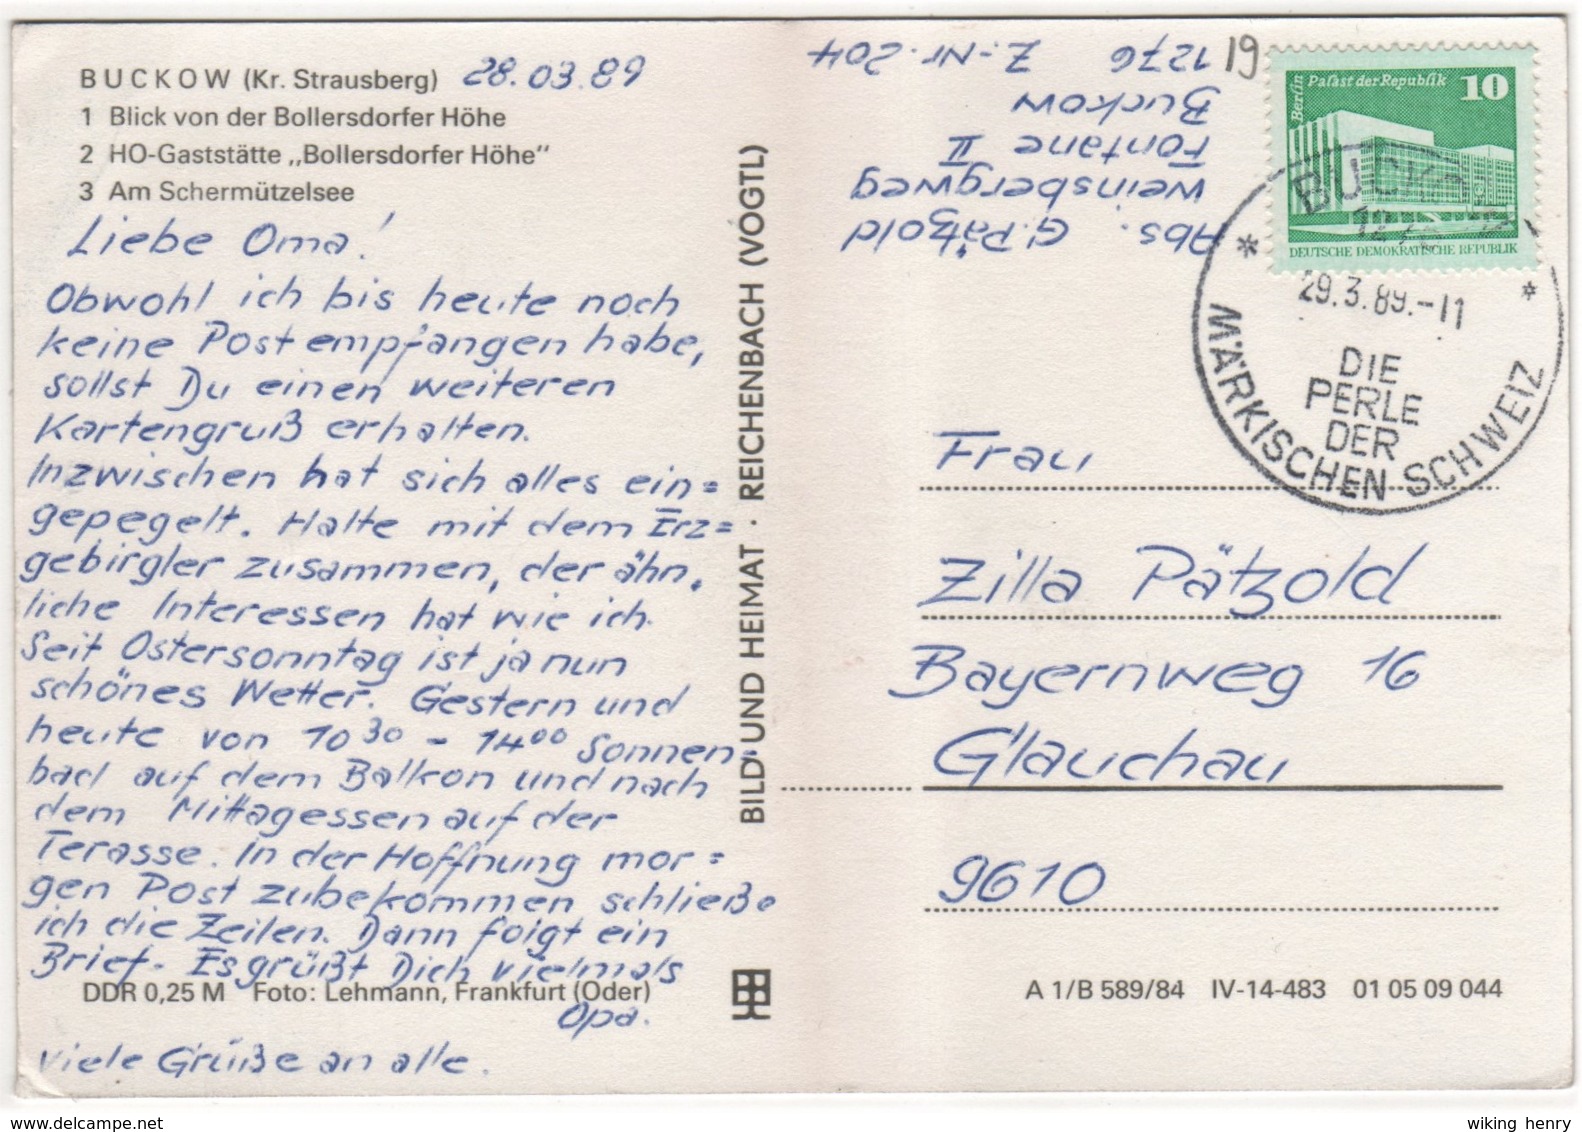 BUCKOW (Kr. Strausberg) 28.03.89
1 Blick von der Bollersdorfer Höhe
2 HO-Gaststätte „Bollersdorfer Höhe"
3 Am Schermützelsee
Liebe Oma!
Obwohl ich bis heute noch
keine Post empfangen habe,
sollst Du einen weiteren
Kartengruß erhalten.
Inzwischen hat sich alles ein=
gepegelt. Halte mit dem Erz=
gebirgler zusammen, der ähn.
liche Interessen hat wie ich.
Seit Ostersonntag ist ja nun
schönes Wetter. Gestern und
heute von 10³⁰ - 14⁰⁰ Sonnen=
bad auf dem Balkon und nach
dem Mittagessen auf der
Terasse. In der Hoffnung mor=
gen Post zubekommen schließe
ich die Zeilen. Dann folgt ein
Brief. Es grüßt Dich vielmals
DDR 0,25 M Foto: Lehmann, Frankfurt (Oder)
Opa.
Viele Grüße an alle.
BILD UND HEIMAT · REICHENBACH (VOGTL)
Abs. G. Pätzold
Weinsbergweg
Fontane II
Buckow
1276 Z.-Nr. 204
19
Berlin Palast der Republik 10
DEUTSCHE DEMOKRATISCHE REPUBLIK
BUCKOW
1276
29.3.89.-11
DIE
PERLE
DER
MÄRKISCHEN SCHWEIZ
Frau
Zilla Pätzold
Bayernweg 16
Glauchau
9610
A 1/B 589/84 IV-14-483 01 05 09 044
wiking henry